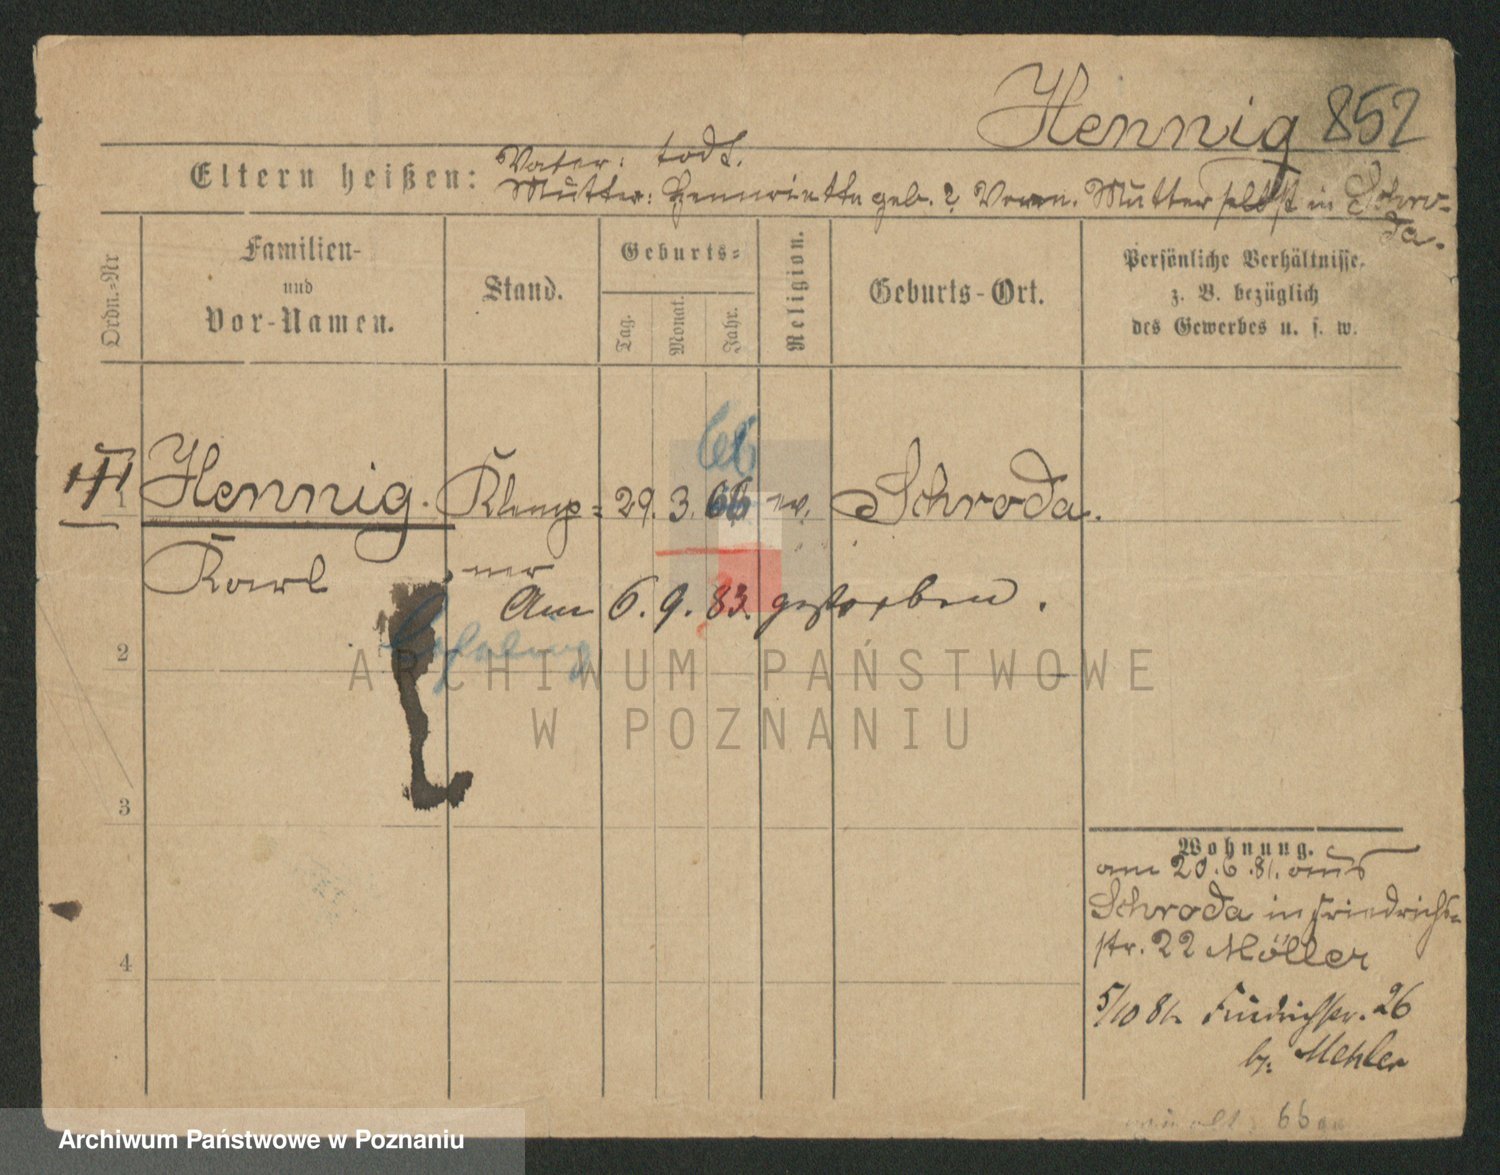 Hennig 852
Eltern heißen:
Vater: todt.
Mutter: Henrietta geb. ? Verm. Mutter selbst in Schro-
da.
Ordn.-Nr
Familien-
und
Vor-Namen.
Stand.
Geburts-
Tag.
Monat.
Jahr.
Religion.
Geburts-Ort.
Persönliche Verhältnisse.
z. B. bezüglich
des Gewerbes u. s. w.
66
1 Hennig. Klemp= 29. 3. 66 ev. Schroda.
Karl ner
Am 6. 9. 83. gestorben.
2
ARCHIWUM PAŃSTWOWE
W POZNANIU
3
4
Wohnung.
am 20.6.81. aus
Schroda in Friedrichs-
str. 22 Möller
5/10 81 Friedrichstr. 26
b. Mehler
66
Archiwum Państwowe w Poznaniu